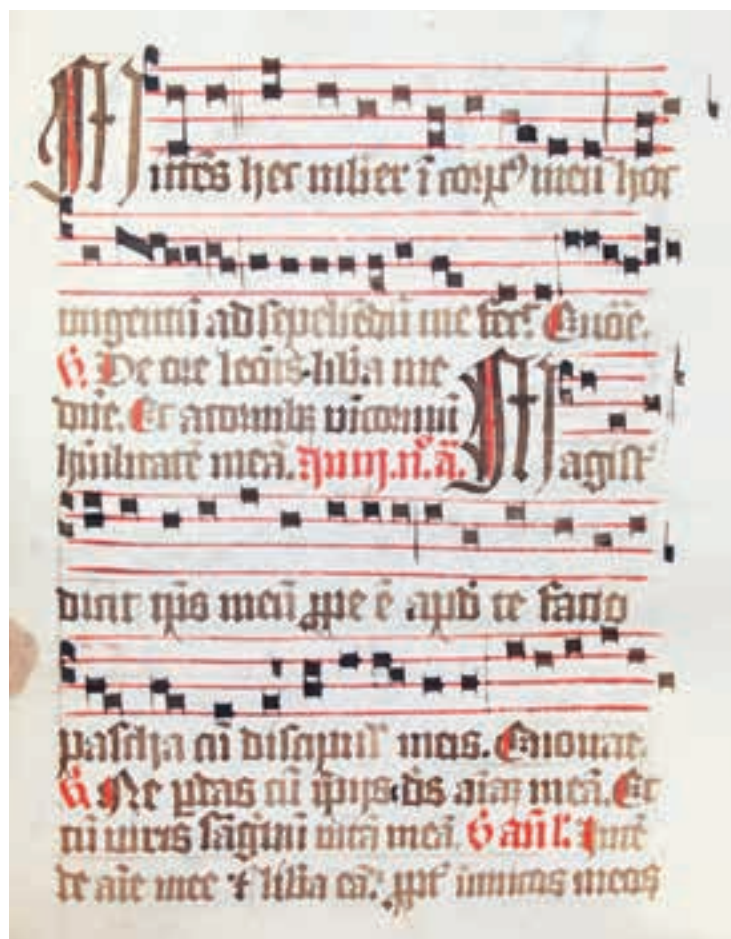 Mittēs hec mlier ī corpꝰ meū hoc
ungentū ad sepeliēdū me fec. Euoe.
De ore leōis liba me
dne. Et a cornibꝫ vnicornui
hūilitatē meā.
Magist
dicit tēpꝰ meū ꝓpe ē apd te facio
pascha cū discipul meis. Euouae.
Ne pdas cū īpijs ds aīaꝫ meā. Et
cū viris sāgīnū vitā meā. Intē
de aīe mee ⁊ liba eā. ꝓpt inimicos meos